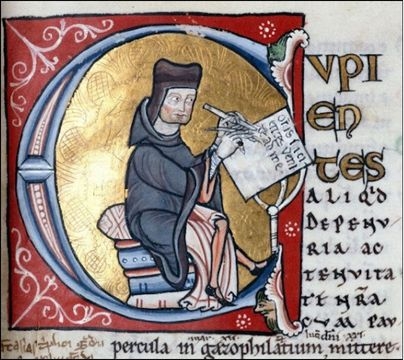 CVPI
EN
TES
ALIQ'D
DE PENV
RIA AC
TENVITA
TE NRA
CVM PAV
percula in gazophilatium mittere.